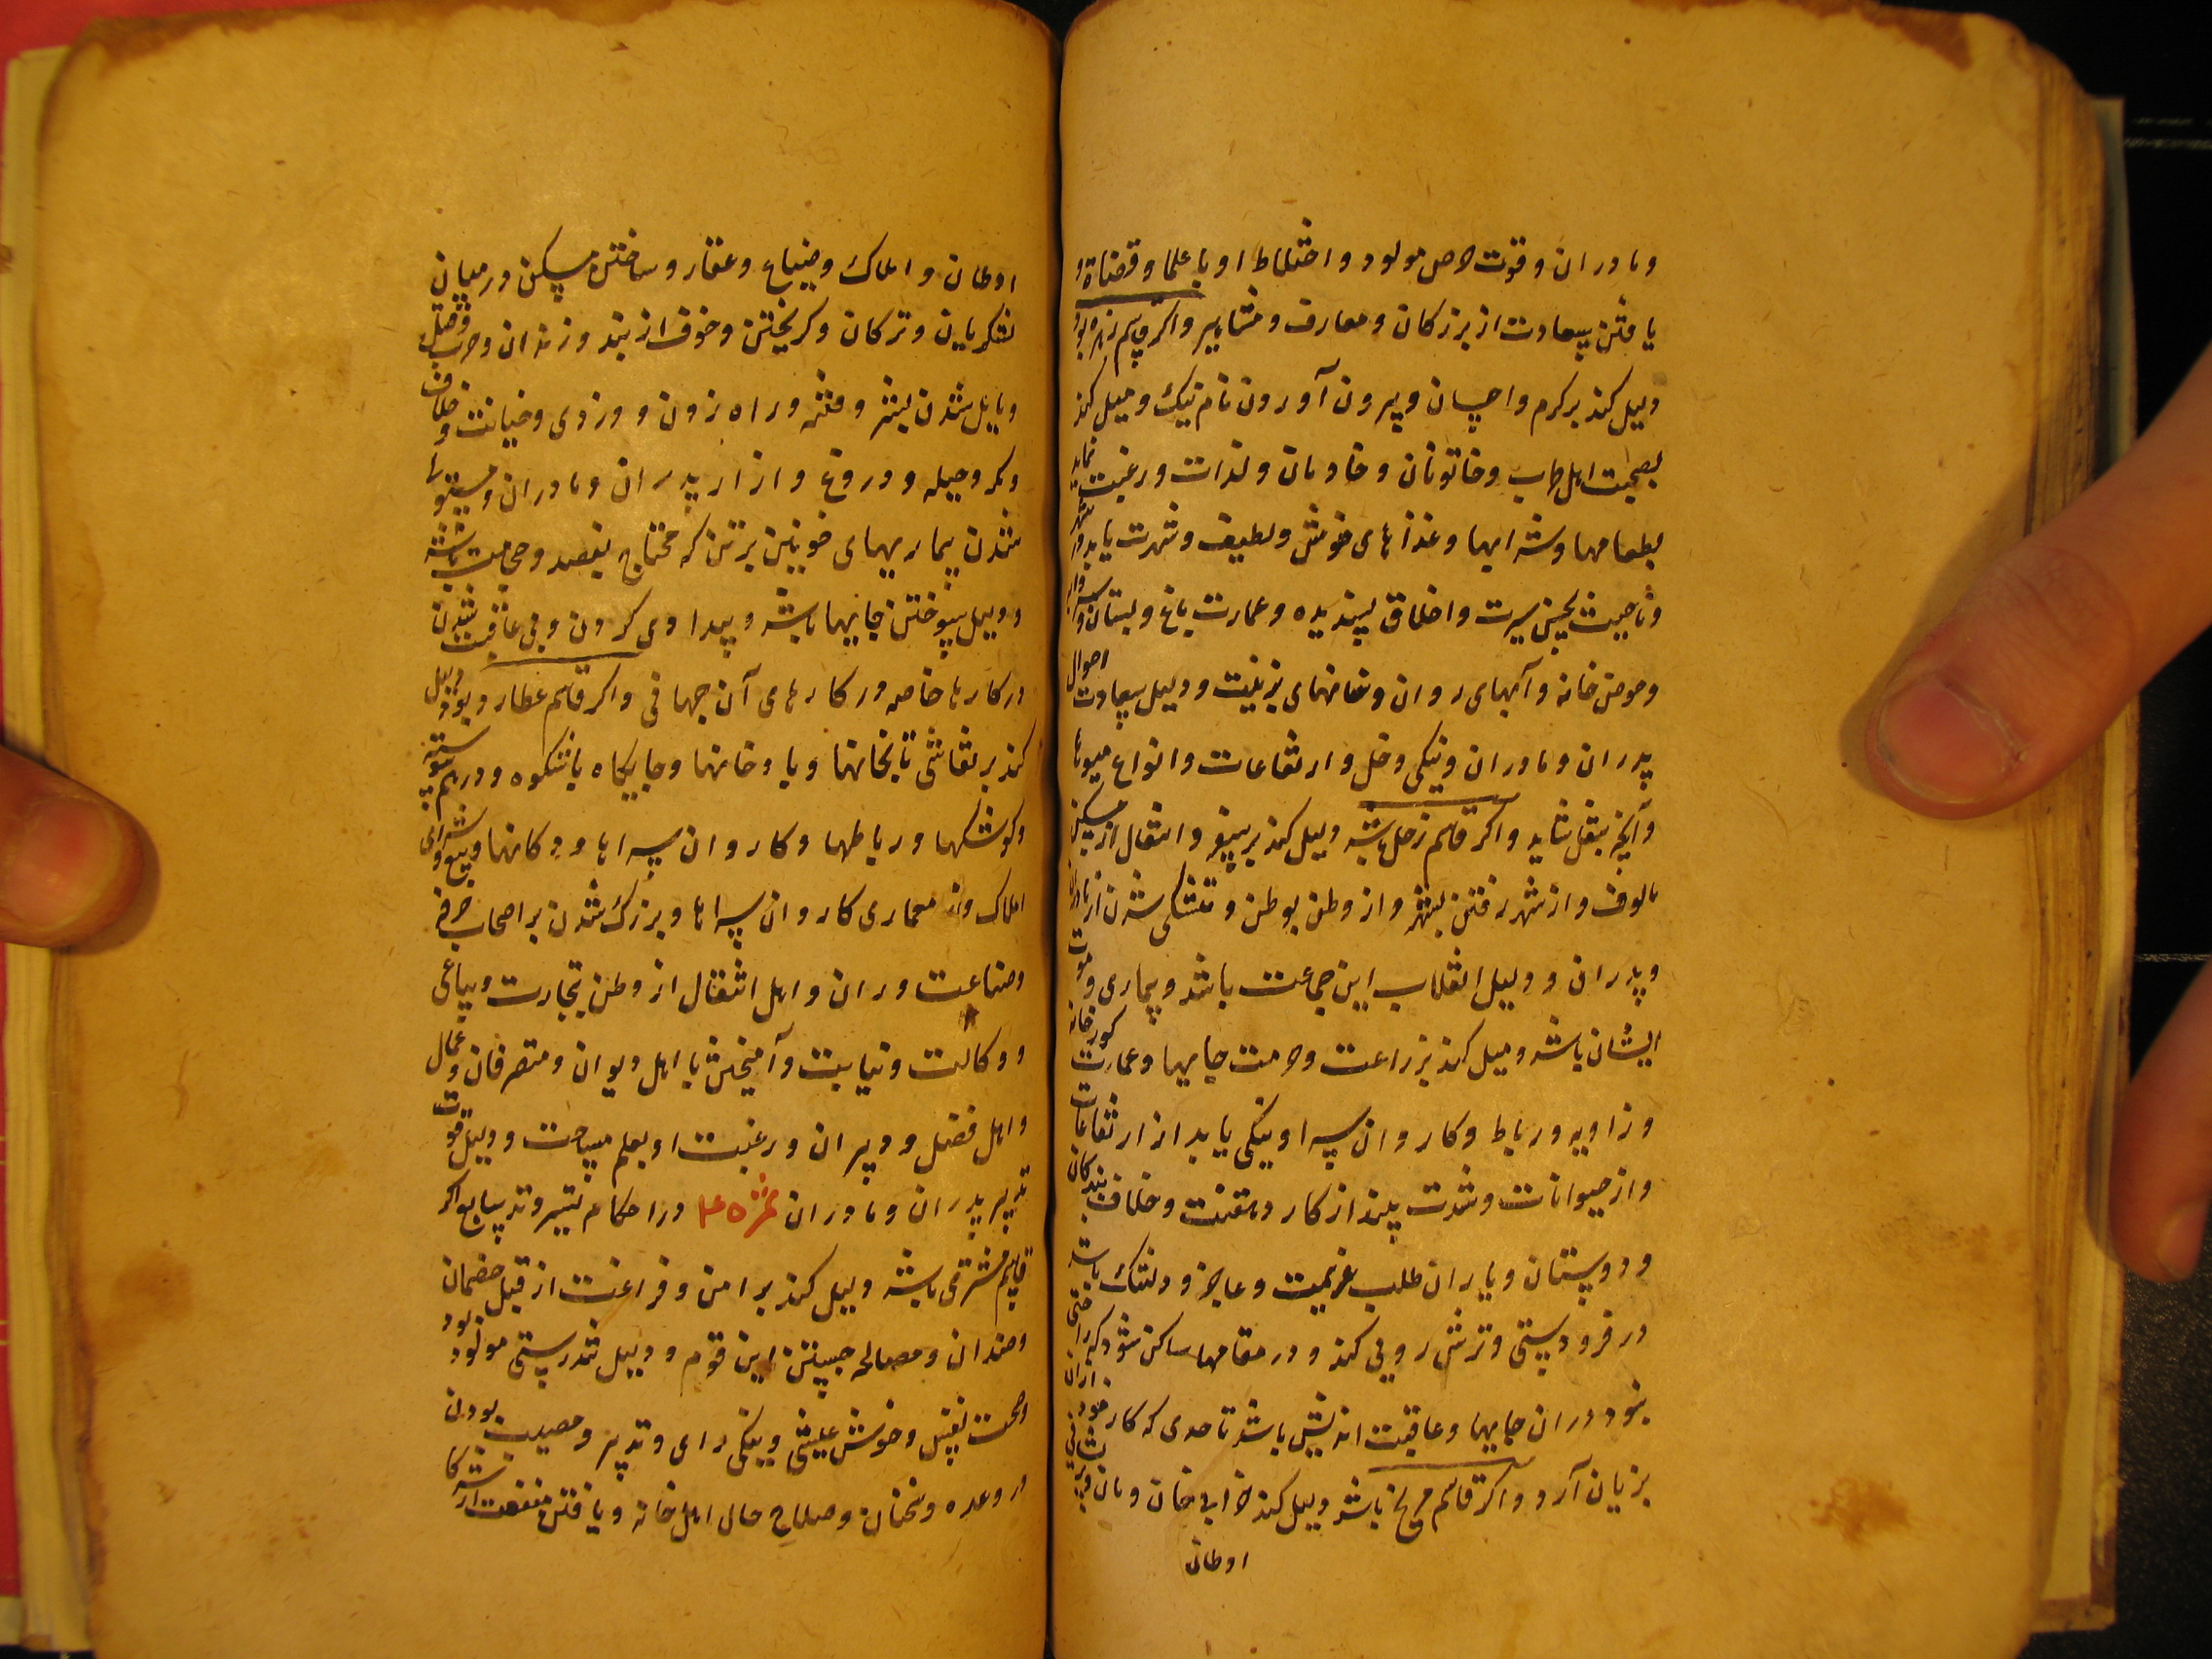 و مادران و قوت حرص مولود و اختلاط او با علما و قضاة و
یافتن سعادت از بزرکان و معارف و مشاهیر و اکر قاسم زهره بود
دلیل کند بر کرم و احسان و بیرون آوردن نام نیک و میل کند
بصحبت اهل طرب و خاتونان و خادمان و لذات و رغبت نماید
بطعامها و شرابها و غذاهای خوش و لطیف و شهرت یابد در شهر
و ناحیت بحسن سیرت و اخلاق پسندیده و عمارت باغ و بستان و سراها
و حوض خانه و آبهای روان و خانهای بزینت و دلیل سعادت احوال
پدران و مادران و نیکی دخل و ارتفاعات و انواع میوها
و آنچ بنقل شاید و اکر قاسم زحل باشد دلیل کند بر سفر و انتقال از مسکن
مالوف و از شهر رفتن بشهر و از وطن بوطن و مشتکی شدن از مادران
و پدران و دلیل انقلاب این جماعت باشد و بیماری و موت
ایشان باشد و میل کند بزراعت و مرمت جایها و عمارت کورخانه
و زاویه و رباط و کاروان سرا و نیکی یابد از ارتفاعات
و از حیوانات و شدت بیند از کار دهقنت و خلاف بندکان
و دوستان و یاران طلب عزیمت و عاجز و دلتنک باشد
در فرودستی و ترش رویی کند و در مقامها ساکن شود که راحتی
نبود در ان جایها و عاقبت اندیش باشد تا حدی که کار خود ازان
بزیان آرد و اکر قاسم مریخ باشد دلیل کند خرابی خان و مان و پریشانی
اوطان
اوطان و املاک و ضیاع و عقار و ساختن مسکن در میان
لشکریان و ترکان و کریختن و خوف از بند و زندان و ضرب و قتل
و مایل شدن بشر و فتنه و راه زدن و دزدی و خیانت و خلاف
و مکر و حیله و دروغ و ازار پدران و مادران و مستولی
شدن بیماریهای خونین بر تن که محتاج بفصد و حجامت باشد
و دلیل سوختن جایها باشد و بیدادی کردن و بی عاقبت شدن
در کارها خاصه در کارهای آن جهانی و اکر قاسم عطارد بود دلیل
کند بر نقاشی تابخانها و بادخانها و جایکاه باشکوه و درم
و کوشکها و رباطها و کاروان سراها و دکانها و بیع و شرای
املاک و معماری کاروان سراها و بزرک شدن بر اصحاب حرفه
و صناعت و ران و اهل انتقال از وطن بتجارت و بیاعی
و وکالت و نیابت و آمیختن با اهل دیوان و متصرفان و عمال
و اهل فضل و دبیران و رغبت او بعلم مساحت و دلیل قوت
تدبیر پدران و مادران در احکام تسییر و تدبیر سابع اکر
قاسم مشرقی باشد دلیل کند بر امن و فراغت از قبل خصمان
و ضدان و مصالحه جستن این قوم و دلیل تندرستی مولود بود
و صحت نفس و خوش عیشی و نیکی رای و تدبیر و مصیب بودن
در وعده و سخنان و صلاح حال اهل خانه و یافتن منفعت از شرکا